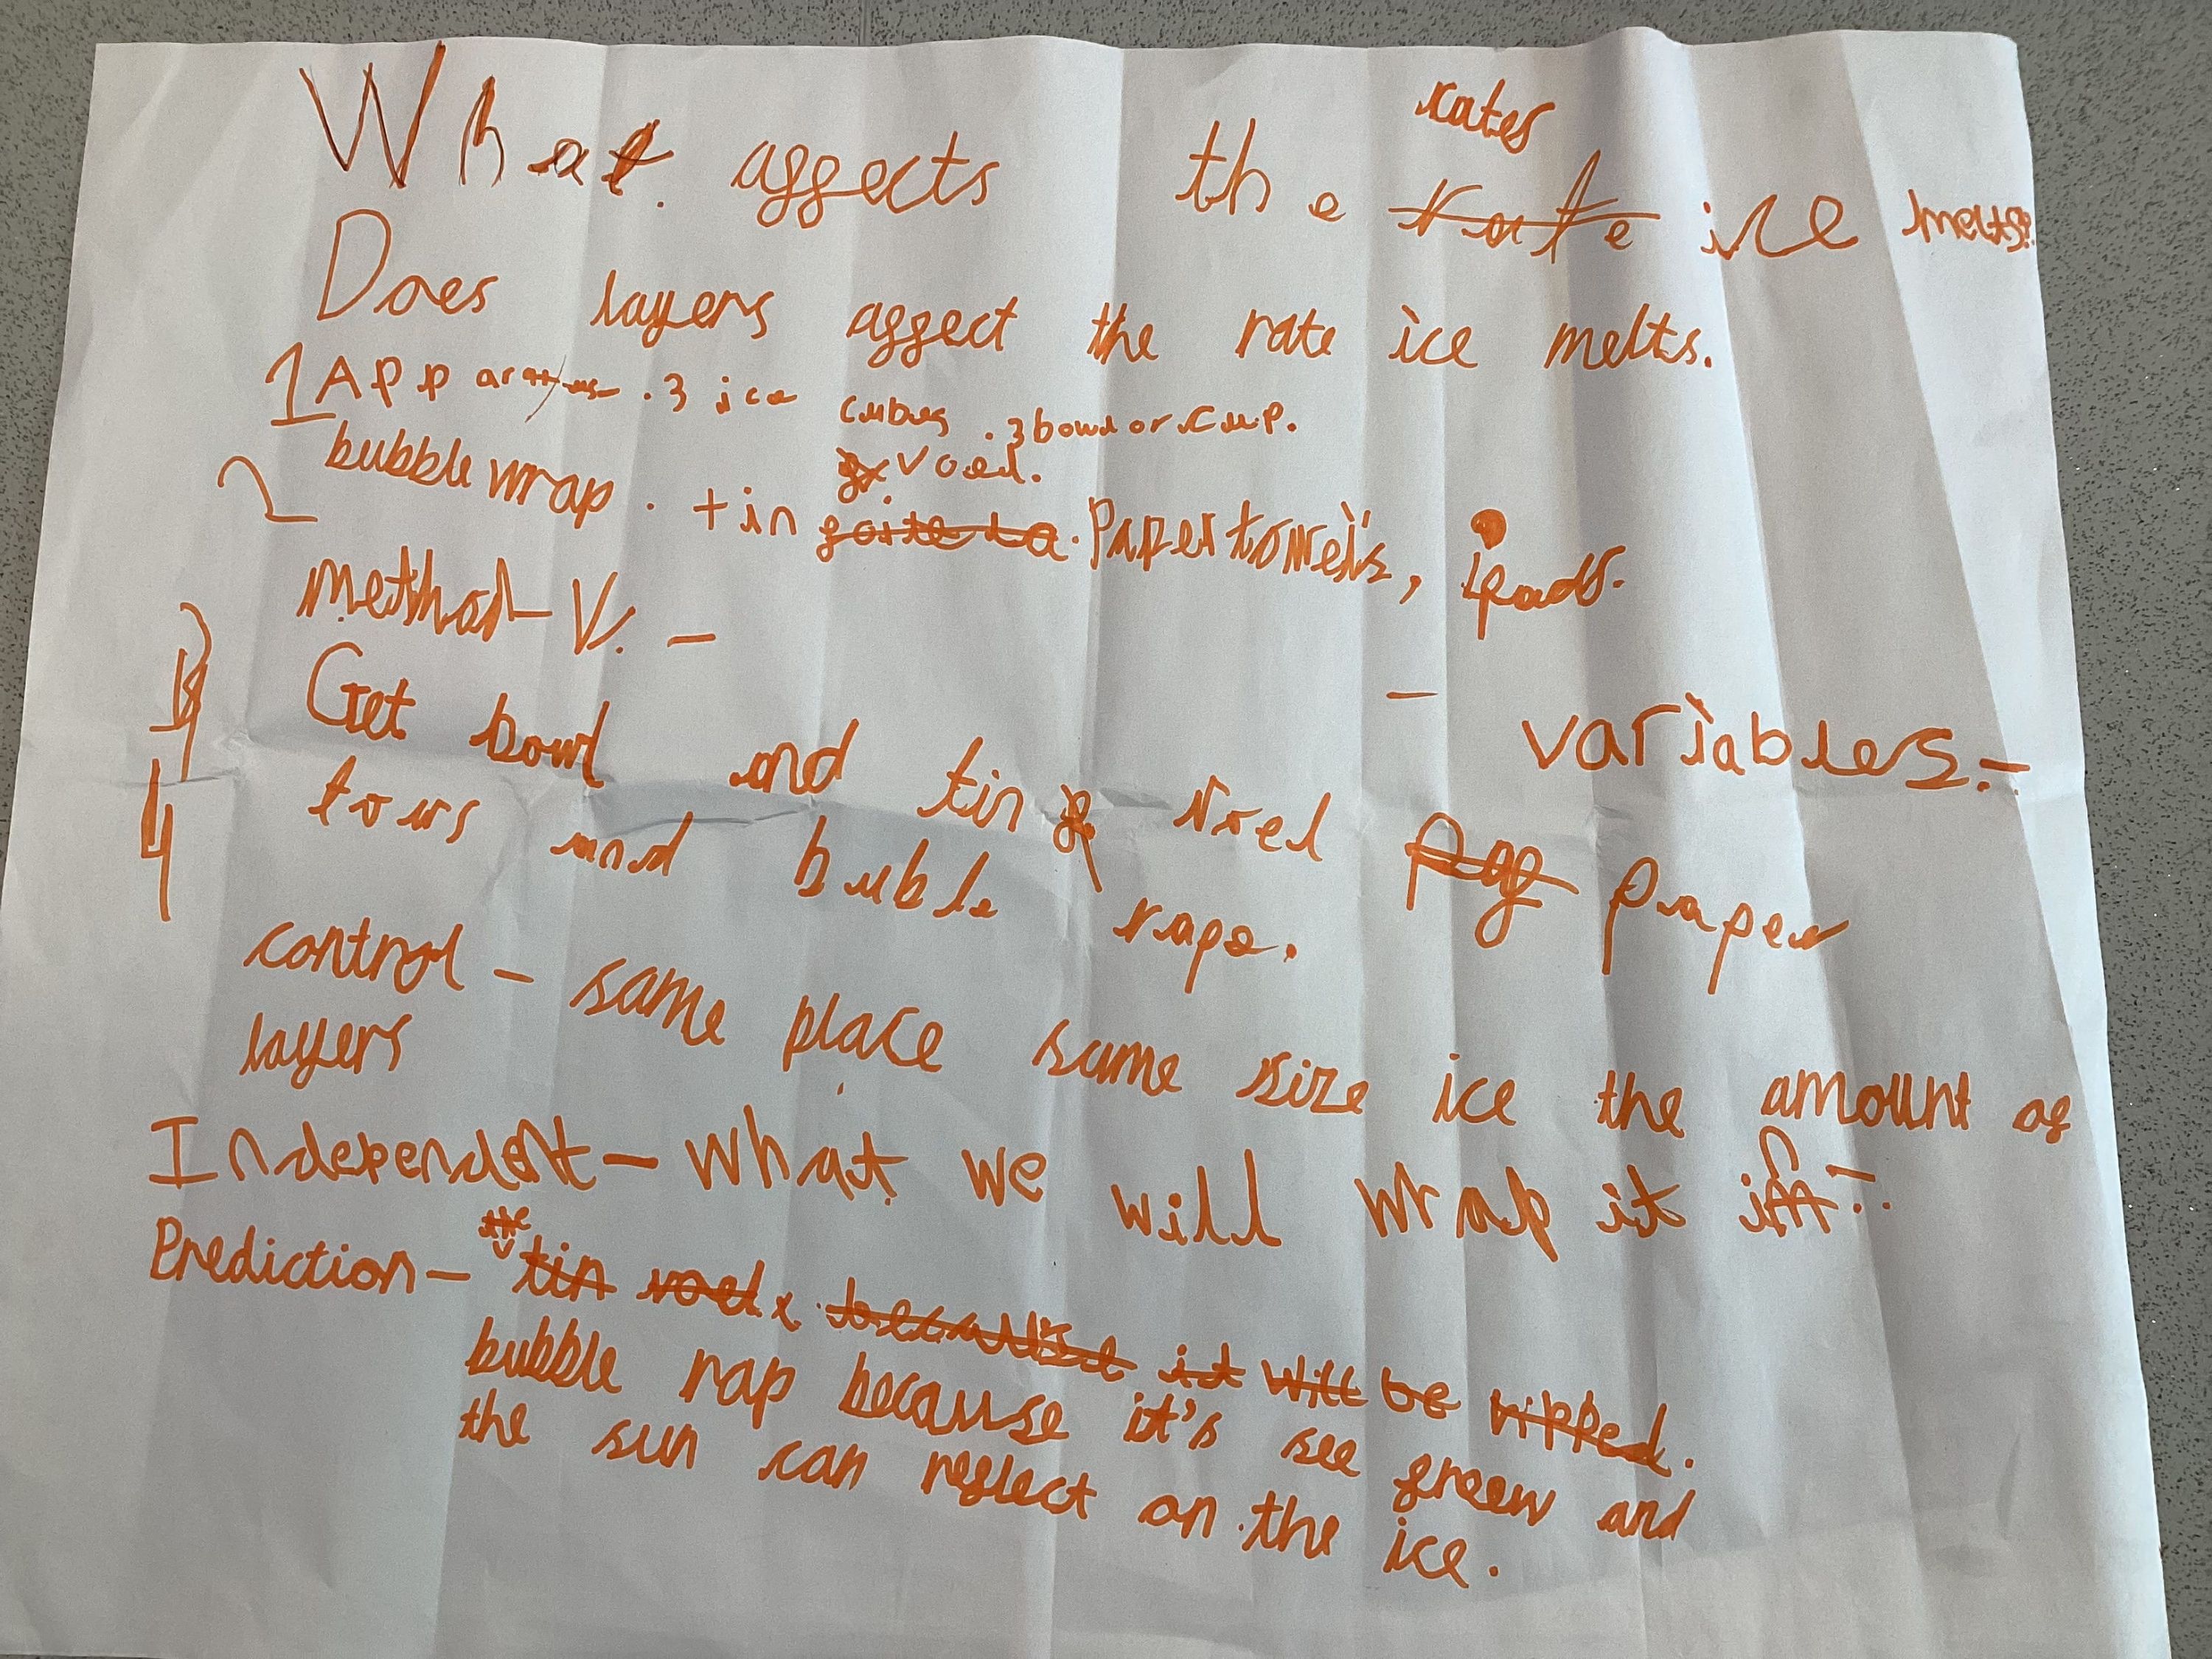 rates
What affects the rate ice melts?
Does layers affect the rate ice melts.
1 Apparatus . 3 ice cubes . 3 bowl or cup.
voel.
2 bubble wrap . tin paper towels, ipads.
method
variables -
3 Get bowl and tin voel paper
4 tows and buble rape.
control - same place same size ice the amount of
layers
Independent - What we will wrap it in
the
Prediction - tin voel because it will be ripped.
bubble rap because it's see freew and
the sun can reflect on the ice.